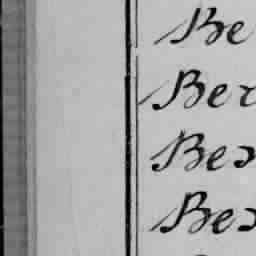 Be
Ber
Ber
Ber